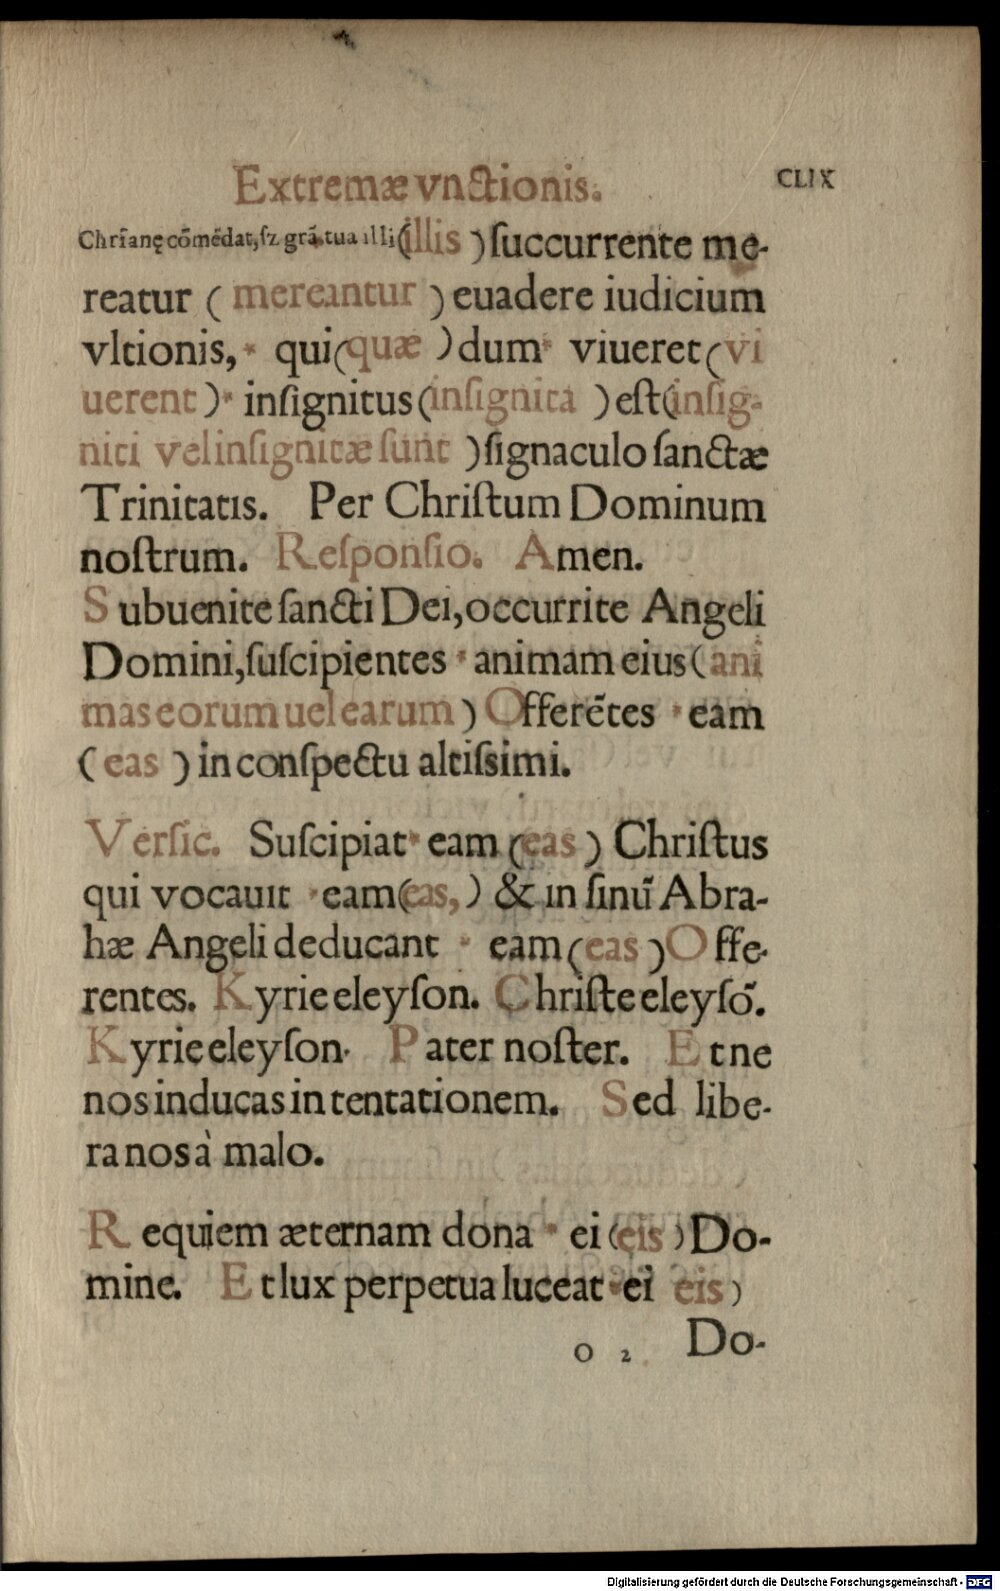 Extremæ vnctionis.
CLIX
Chrīanę cōmēdat, sz grā tua illi (illis ) ſuccurrente me-
reatur ( mereantur ) euadere iudicium
vltionis, * qui (quæ ) dum * viueret (vi
uerent ) * inſignitus (inſignita ) eſt (inſig-
niti vel inſignitæ ſunt ) ſignaculo ſanctæ
Trinitatis. Per Chriſtum Dominum
noſtrum. Reſponſio. Amen.
Subuenite ſancti Dei, occurrite Angeli
Domini, ſuſcipientes * animam eius (ani
mas eorum uel earum ) Offerētes * eam
( eas ) in conſpectu altiſsimi.
Verſic. Suſcipiat * eam (eas ) Chriſtus
qui vocauit * eam (eas, ) & in ſinū Abra-
hæ Angeli deducant * eam (eas ) Offe-
rentes. Kyrie eleyſon. Chriſte eleyſō.
Kyrie eleyſon. Pater noſter. Et ne
nos inducas in tentationem. Sed libe-
ra nos à malo.
Requiem æternam dona * ei (eis ) Do-
mine. Et lux perpetua luceat * ei eis )
O 2 Do-
Digitalisierung gefördert durch die Deutsche Forschungsgemeinschaft - DFG